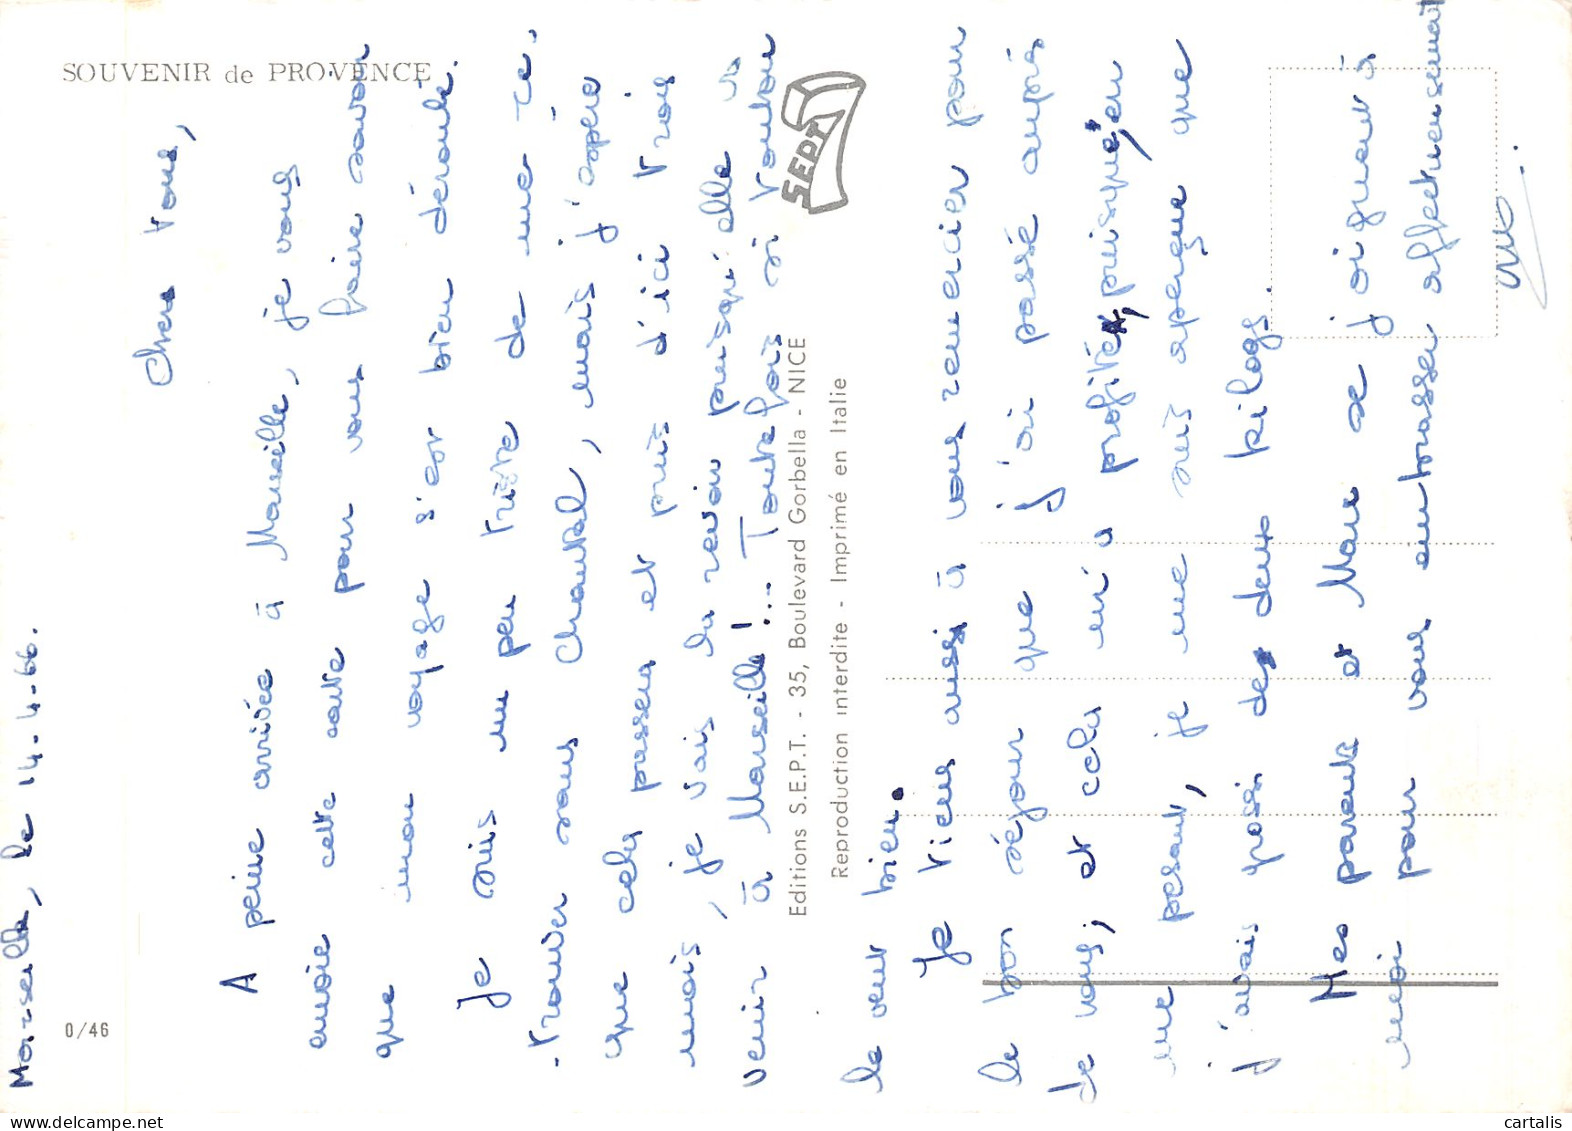 SOUVENIR de PROVENCE
Marseille, le 14-4-66.
Chers vous,
A peine arrivée à Marseille, je vous
envoie cette carte pour vous faire savoir
que mon voyage s'est bien déroulé.
Je suis un peu triste de me re-
-trouver sans Chantal, mais j'espère
que cela passera et puis d'ici trois
mois, je vais la revoir puisqu'elle va
venir à Marseille!... Toutefois si Tonton
le veut bien.
Je tiens aussi à vous remercier pour
le bon séjour que j'ai passé auprès
de vous, et cela m'a profité, puisqu'en
me pesant, je me suis aperçue que
j'avais grossi de deux kilogs.
Mes parents et Marc se joignent à
moi pour vous embrasser affectueusement
SEPT
Editions S.E.P.T. - 35, Boulevard Gorbella - NICE
Reproduction interdite - Imprimé en Italie
0/46
cartalis.com